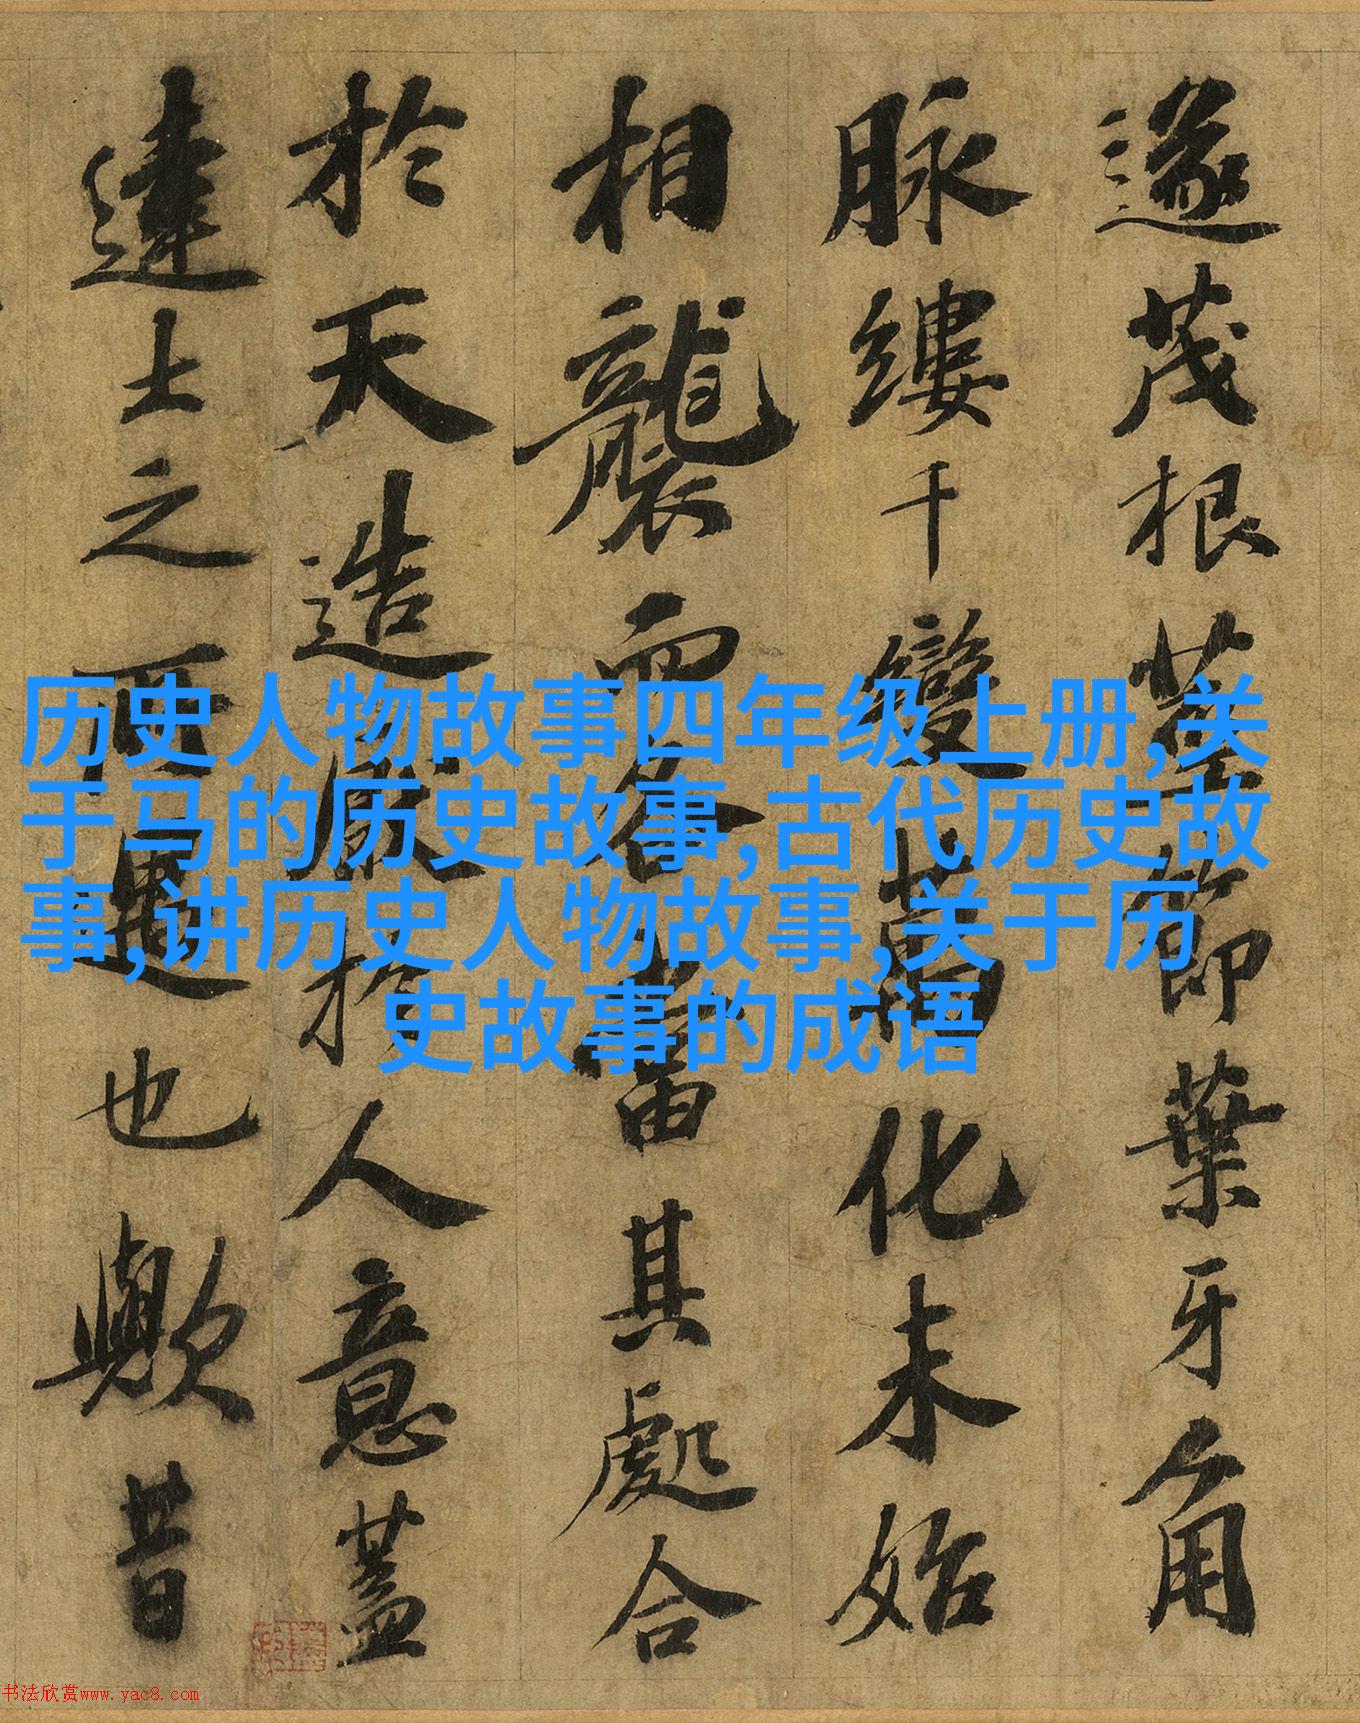 遂茂根莖節葉牙角
脉縷千變萬化未始
相襲而各當其處合
於天造厭於人意蓋
達士之所寓也歟昔
历史人物故事四年级上册,关
于马的历史故事,古代历史故
事,讲历史人物故事,关于历
史故事的成语
书法欣赏www.yac8.com